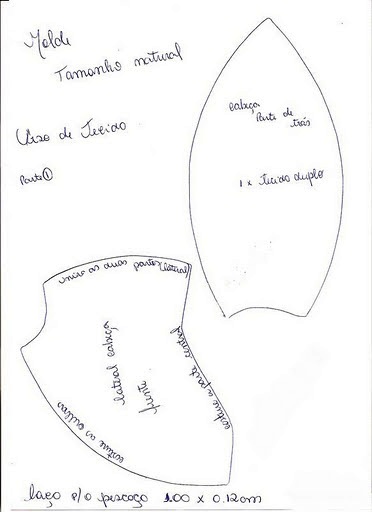 Molde
Tamanho natural
Urso de Tecido
Parte ①
cabeça
Parte de
trás
1 x Tecido duplo
unir as duas partes (lateral)
lateral cabeça
frente
costure a parte central
costure as orelhas
laço p/o pescoço 1.00 x 0.12cm